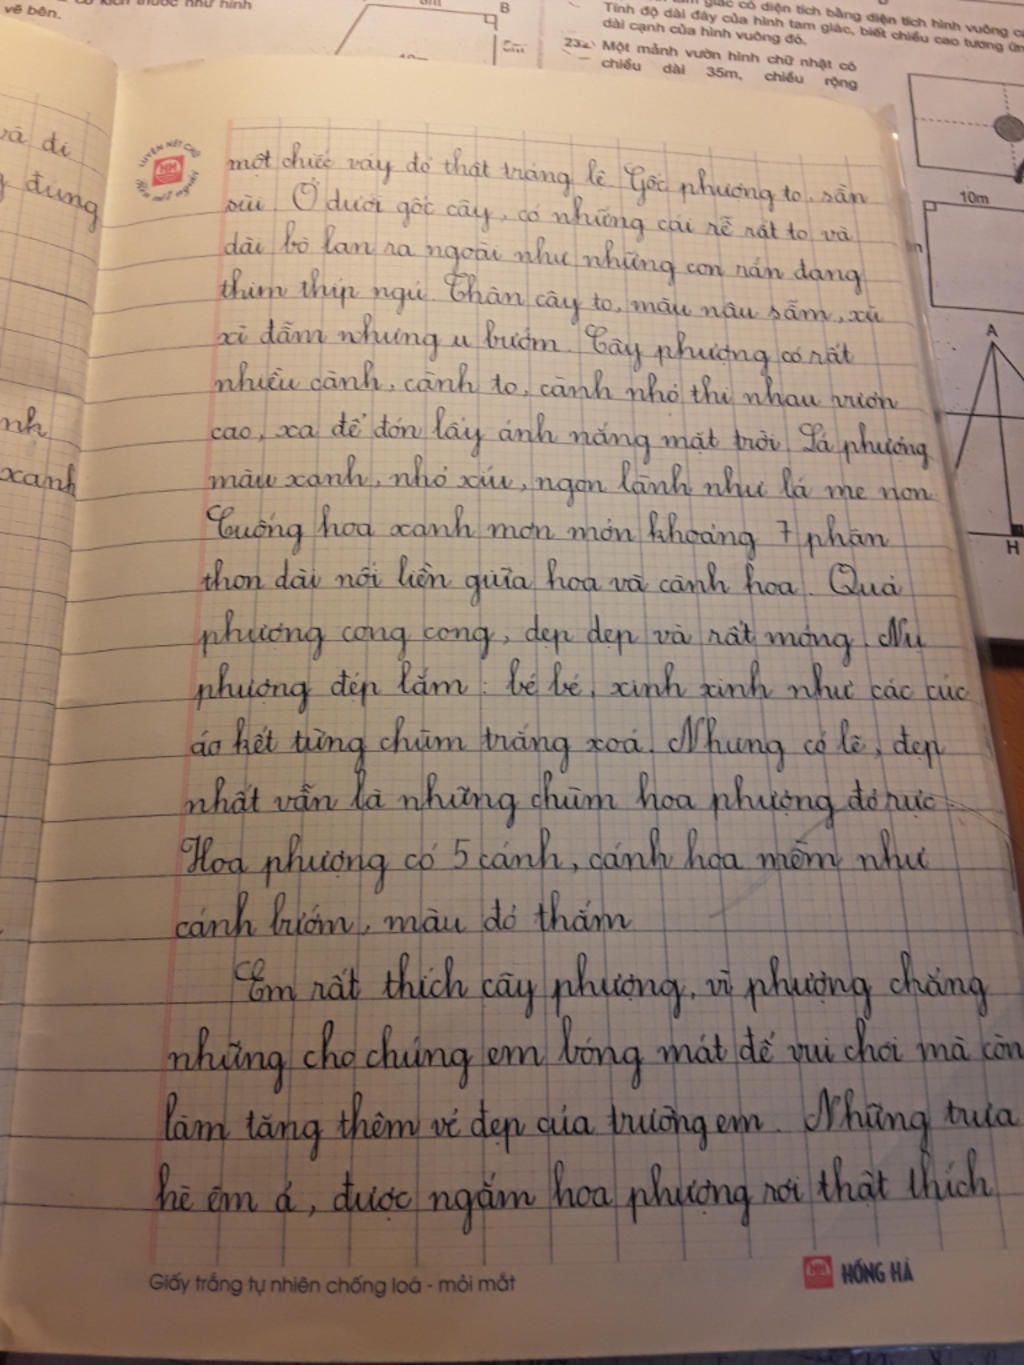 vẽ bên.
thước như hình
B
giác có diện tích bằng diện tích hình vuông
Tính độ dài đáy của hình tam giác, biết chiều cao tương
dài cạnh của hình vuông đó.
232. Một mảnh vườn hình chữ nhật có
chiều dài 35m, chiều rộng
10m
A
H
và đi
đung
nh
xanh
LUYỆN NÉT CHỮ
HH
RÈN NẾT NGƯỜI
một chiếc váy đỏ thật tráng lệ. Gốc phượng to, sần
sùi. Ở dưới gốc cây, có những cái rễ rất to và
dài bò lan ra ngoài như những con rắn đang
thim thíp ngủ. Thân cây to, màu nâu sẫm, xù
xì đẫm nhưng u bướm. Cây phượng có rất
nhiều cành, cành to, cành nhỏ thi nhau vươn
cao, xa để đón lấy ánh nắng mặt trời. Lá phượng
màu xanh, nhỏ xíu, ngon lành như lá me non.
Cuống hoa xanh mơn mởn khoảng 7 phân
thon dài nối liền giữa hoa và cành hoa. Quả
phượng cong cong, dẹp dẹp và rất mỏng. Nụ
phượng đẹp lắm: bé bé, xinh xinh như các cúc
áo kết từng chùm trắng xoá. Nhưng có lẽ, đẹp
nhất vẫn là những chùm hoa phượng đỏ rực.
Hoa phượng có 5 cánh, cánh hoa mềm như
cánh bướm, màu đỏ thắm
Em rất thích cây phượng, vì phượng chẳng
những cho chúng em bóng mát để vui chơi mà còn
làm tăng thêm vẻ đẹp của trường em. Những trưa
hè êm ả, được ngắm hoa phượng rơi thật thích
Giấy trắng tự nhiên chống loá - mỏi mắt
HH HỒNG HÀ